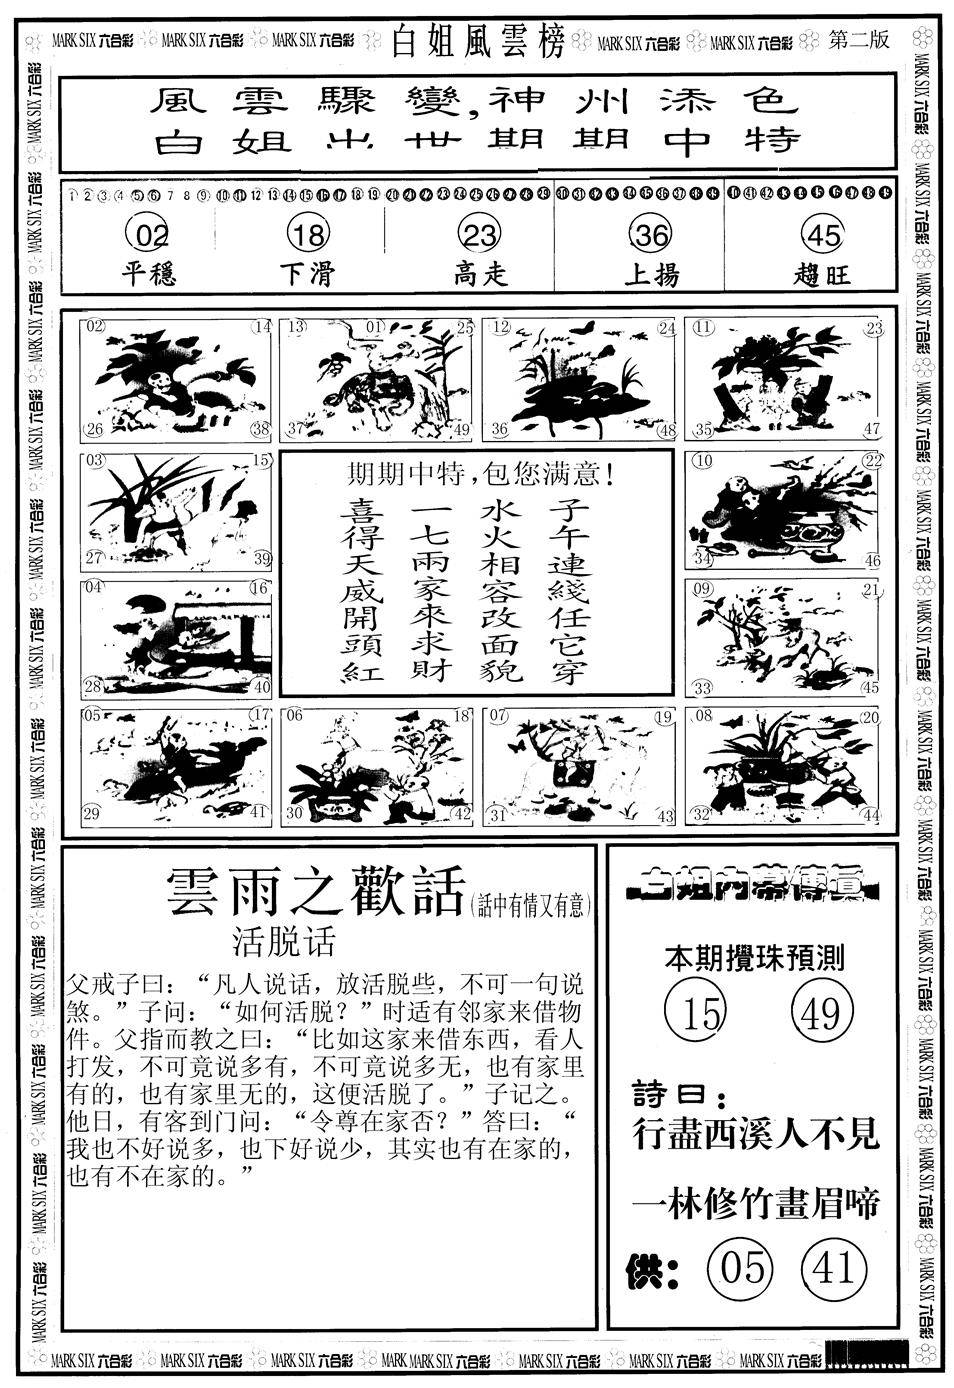 MARK SIX 六合彩 MARK SIX 六合彩 MARK SIX 六合彩 白姐風雲榜 MARK SIX 六合彩 MARK SIX 六合彩 第二版
風雲驟變,神州添色
白姐出世期期中特
1 2 3 4 5 6 7 8 9 10 11 12 13 14 15 16 17 18 19 20 21 22 23 24 25 26 27 28 29 30 31 32 33 34 35 36 37 38 39 40 41 42 43 44 45 46 47 48 49
02 18 23 36 45
平穩 下滑 高走 上揚 趨旺
02 14 13 01 25 12 24 11 23
26 38 37 49 36 48 35 47
03 15
27 39
04 16
28 40
期期中特,包您满意!
子午連綫任它穿
水火相容改面貌
一七兩家來求財
喜得天威開頭紅
10 22
34 46
09 21
33 45
05 17 06 18 07 19 08 20
29 41 30 42 31 43 32 44
雲雨之歡話(話中有情又有意)
活脱话
父戒子曰：“凡人说话，放活脱些，不可一句说
煞。”子问：“如何活脱？”时适有邻家来借物
件。父指而教之曰：“比如这家来借东西，看人
打发，不可竟说多有，不可竟说多无，也有家里
有的，也有家里无的，这便活脱了。”子记之。
他日，有客到门问：“令尊在家否？”答曰：“
我也不好说多，也下好说少，其实也有在家的，
也有不在家的。”
白姐内幕傳真
本期攪珠預測
15 49
詩曰：
行盡西溪人不見
一林修竹畫眉啼
供： 05 41
MARK SIX 六合彩 MARK SIX 六合彩 MARK SIX 六合彩 MARK MARK SIX 六合彩 MARK SIX 六合彩 MARK SIX 六合彩 MARK SIX 六合彩